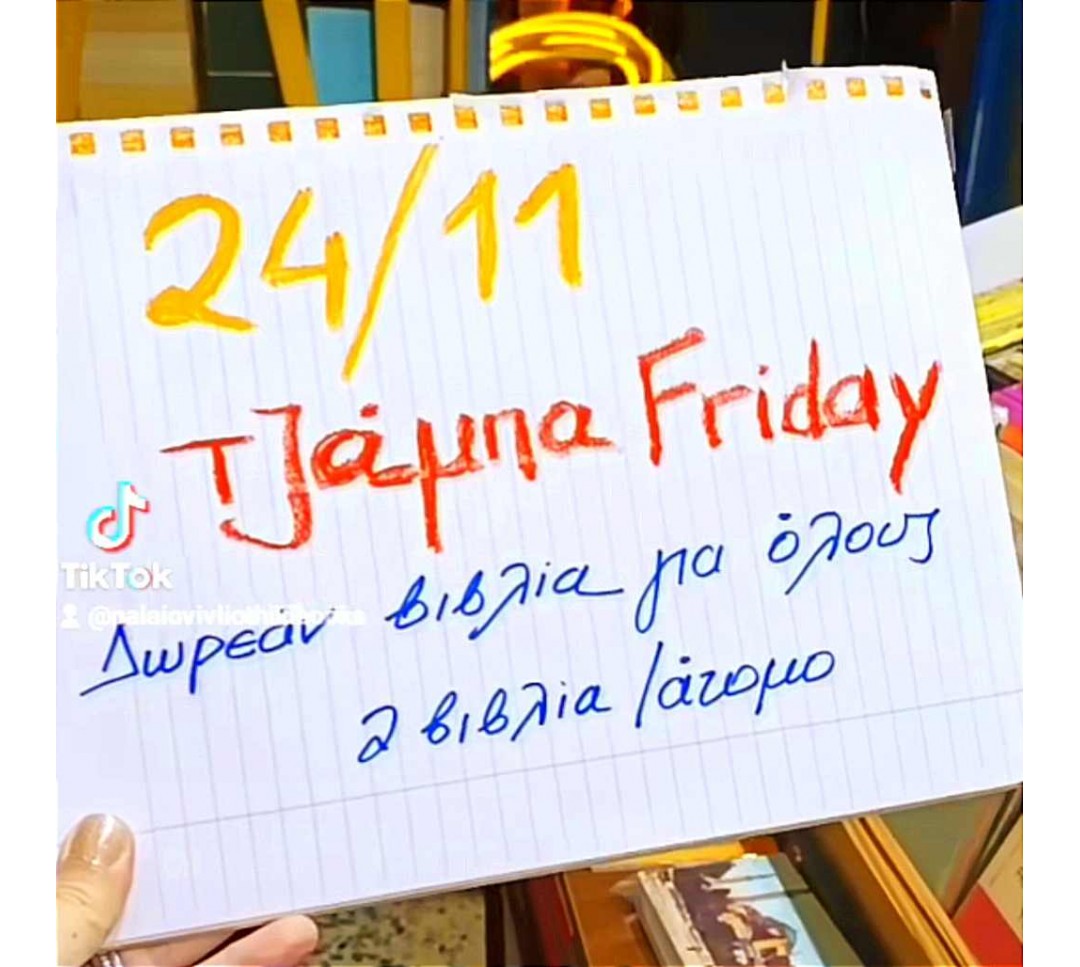 24/11
Τζάμπα Friday
TikTok
Δωρεάν βιβλία για όλους
2 βιβλία /άτομο